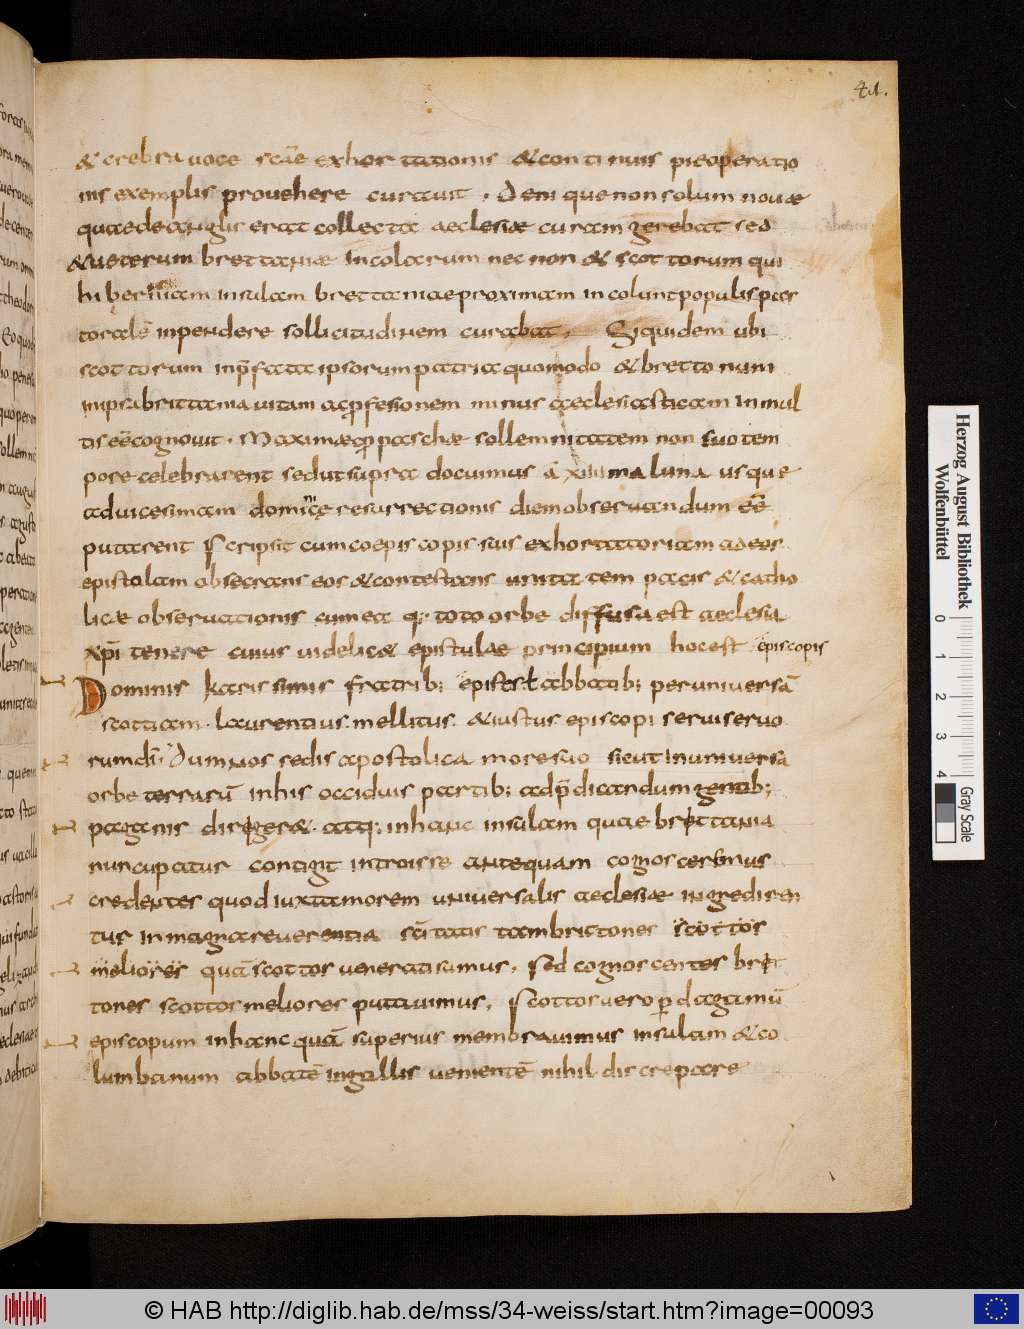 41.
& crebra uoce scãe exhortationis & continuis pie operatio
nis exemplis prouehere curauit. Denique non solum nouae
quae de anglis erat collecta aeclesiae curam gerebat sed
& ueterum brettaniae Incolarum nec non & scottorum qui
hiberniam insulam brettaniae proximam incolunt populis pas
toralẽ inpendere sollicitudinem curabat. Siquidem ubi
scottorum inp̄fata ipsorum patria quomodo & brettonum
in ipsa brittania uitam ac p̱fesionem minus aeclesiasticam In mul
tis eẽ cognouit. Maximae qđ paschae sollemnitatem non suo tem
pore celebrarent sed ut supra docuimus ã xiiii ma luna usque
ad uicesimam dominicę resurrectionis diem obseruandum eẽ
putarent scripsit cum coepiscopis suis exhortatoriam ad eos
epistolam obsecrans eos & contestans unitatem pacis & catho
licae obseruationis cum ea q; toto orbe diffusa est aeclesia
xp̄i tenere cuius uidelic& epistulae principium hoc est
episcopis
Dominis karissimis fratrib; epis uel abbatib; per uniuersã
scottiam. laurentius. mellitus. & iustus episcopi serui seruo
rum dī. Dum nos sedis apostolica more suo sicut In uniuersa
orbe terrarũ In his occiduis partib; ad p̄dicandum gentib;
paganis dirigeret. atq; in hanc insulam quae brettania
nuncupatur contigit introisse antequam cognosceremus
credentes quod iuxta morem uniuersalis aeclesiae ingrediren
tur In magna reuerentia sc̄itatis tam brittones scottos
meliores quã scottos uenerati sumus. Sed cognoscentes bret
tones scottos meliores putauimus. Scottos uero p̱ dagamũ
episcopum in hanc quã superius membrauimus insulam & co
lumbanum abbatẽ in gallis uenientẽ nihil discrepare
Herzog August Bibliothek
Wolfenbüttel
0 1 2 3 4
Gray Scale
© HAB http://diglib.hab.de/mss/34-weiss/start.htm?image=00093